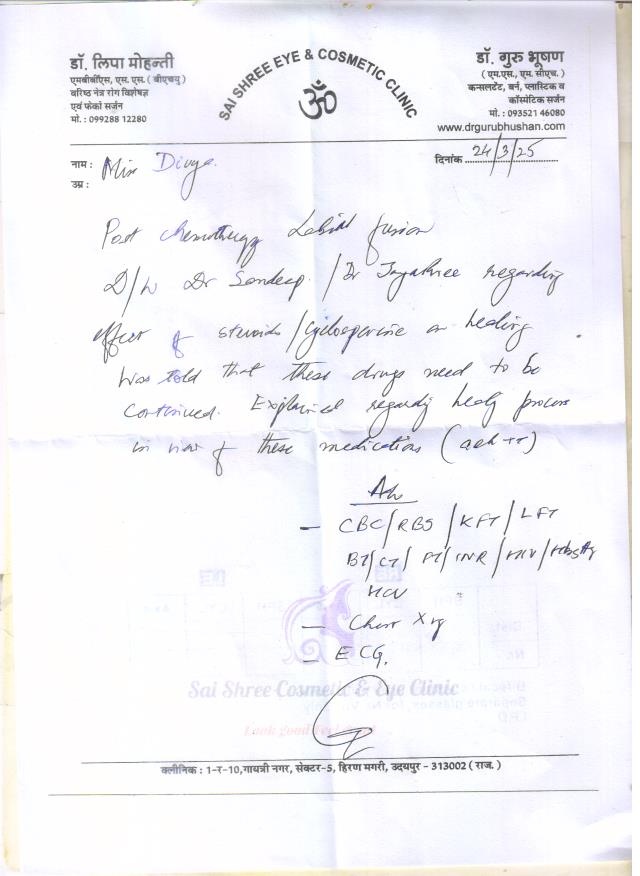 डॉ. लिपा मोहन्ती
एमबीबीएस, एस. एस. ( बीएचयु )
वरिष्ठ नेत्र रोग विशेषज्ञ
एवं फेको सर्जन
मो. : 099288 12280
SAI SHREE EYE & COSMETIC CLINIC
ॐ
डॉ. गुरु भूषण
( एम.एस., एम. सीएच. )
कन्सलटेंट, बर्न, प्लास्टिक व
कॉस्मेटिक सर्जन
मो. : 09352146080
www.drgurubhushan.com
नाम : Miss Divya.
दिनांक 24/3/25
उम्र :
Post chemotherapy Labial fusion
D/w Dr Sandeep / Dr Jayashree regarding
effect of steroids/cyclosporine on healing
Was told that these drugs need to be
continued. Explained regarding healing process
in view of these medications
Adv
- CBC/RBS/KFT/LFT
BT/CT/PT/INR/HIV/HbsAg
HCV
- Chest X ray
- ECG.
Sai Shree Cosmetic & Eye Clinic
Look good Feel
क्लीनिक : 1-र-10, गायत्री नगर, सेक्टर-5, हिरण मगरी, उदयपुर - 313002 ( राज. )